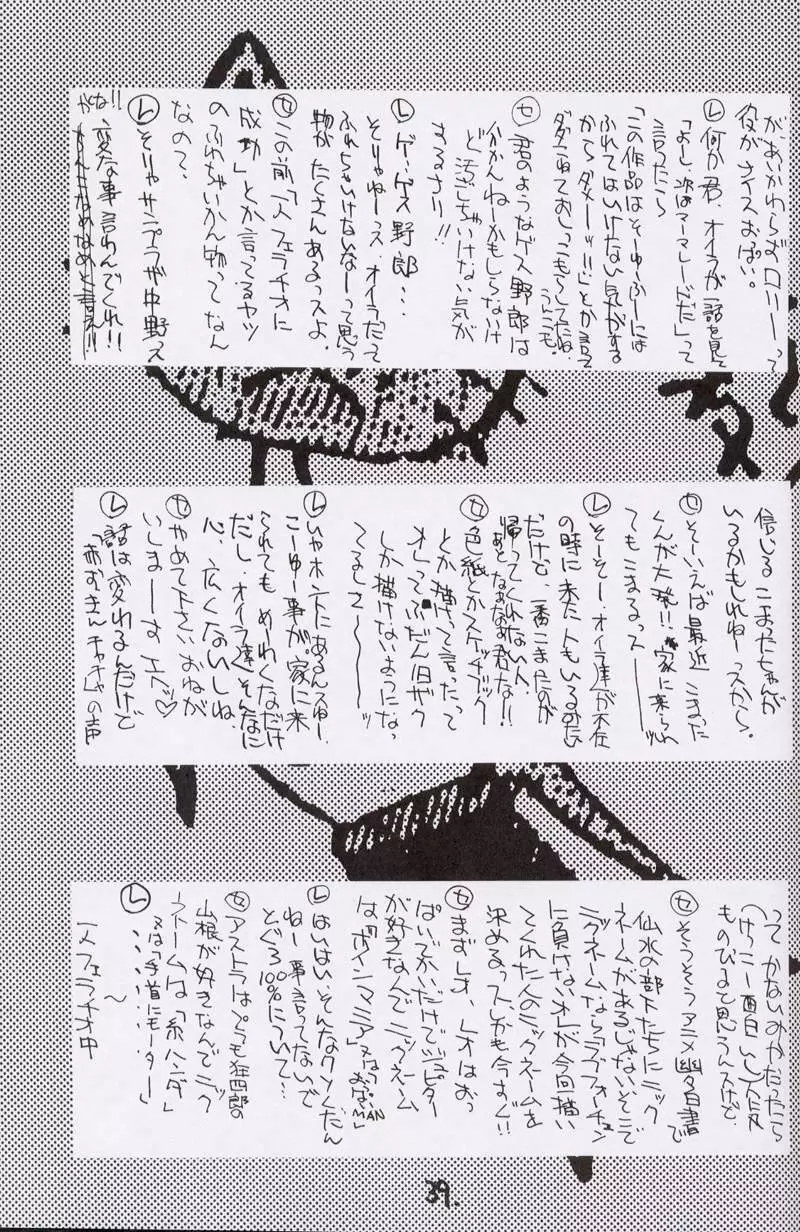 があいかわらずロリーって
役がナイスおっぱい。
Ⓛ何か君、オイラが話を見て
「よし、次はマーマレードだ」って
言ったら
「この作品はそーゆーふーには
ふれてはいけない気がする
からダメーッ!!」とか言って
ダダこねておしっこもらしてたね。
Ⓢ君のようなゲス野郎は
かかんねーかもしらないけ
ど汚しちゃいけない気が
するさり!!
Ⓛゲ、ゲス野郎…
そりゃねーっス、オイラだって
ふれちゃいけないなーって思う
物がたくさんあるっスよ。
Ⓢこの前「一人フェラチオに
成功」とか言ってるヤツ
のふれちゃいかん物ってなん
なの?
Ⓛそりゃサンプラザ中野っス
がな!!変な事言わんでくれ!!
信じるこまったちゃんが
いるかもしれねーっスから。
Ⓢそーいえば最近こまった
くんが大発!!家に来られ
てもこまるっスーーッ
Ⓛそーそー、オイラ達が不在
の時に来た人もいるみたい
だけど、一番こまったのが
帰ってくれない人。
あとなぁなぁ君な!!
Ⓢ色紙とかスケッチブック
とか描けって言ったって
オレってふだん旧ザク
しか描けないようになっ
てるしさーーーッ
Ⓛいやホントにあるんスゅー、
こーゆー事が。家に来
られてもめーわくなだけ
だし、オイラ達そんなに
心、広くないしね。
Ⓢやめて下さいおねが
いしまーす エヘ♡
Ⓛ話は変わるんだけど
「赤ずきんチャチャ」の声
ってかないみかだったら
(けっこー面白い)人気
ものびるって思うっスけど。
Ⓢそうそうアニメ幽白書で
仙水の部下たちにニック
ネームがあるじゃない、そこで
ニックネームならラブフォーチュン
に負けないオレが今回描い
てくれた人のニックネームを
決めるっス、しかも今すぐ!!
Ⓢまずレオ、レオはおっ
ぱいでかいだけでジュピター
が好きなんでニックネーム
は「ボインマニア」又は「おっぱいMAN」
Ⓛはいはい、そんなクソくだん
ねー事言ってないで
とぐろ100%について…
Ⓢアストラはとっても狂四郎の
山根が好きなんでニック
ネームは「糸ハンダ」
又は「手首にモーター」
Ⓛ…………
一人フェラチオ中
〜
39.